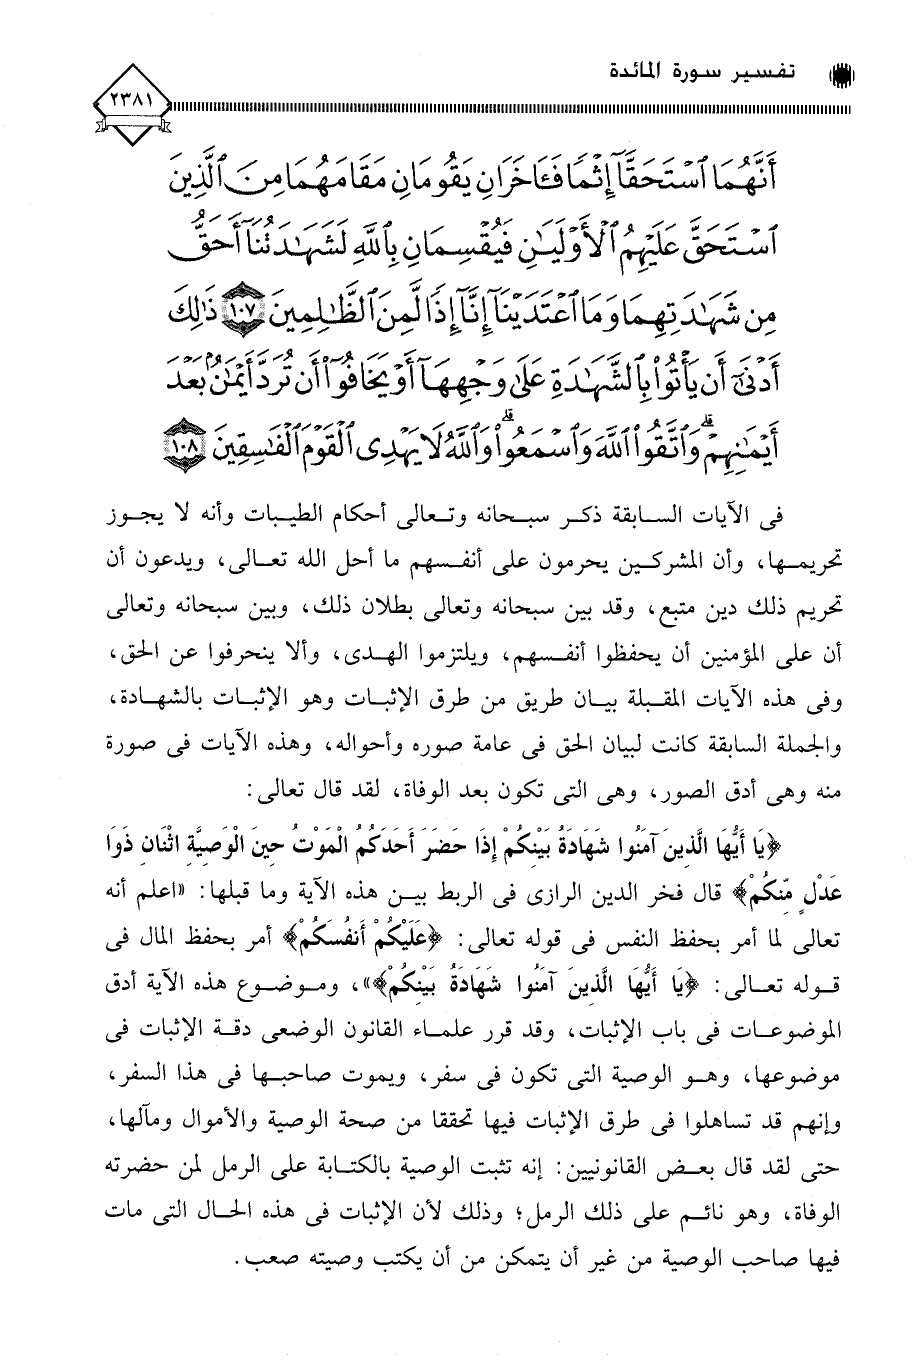 تفسير سورة المائدة
٢٣٨١
أَنَّهُمَا ٱسْتَحَقَّآ إِثْمًا فَـَٔاخَرَانِ يَقُومَانِ مَقَامَهُمَا مِنَ ٱلَّذِينَ
ٱسْتَحَقَّ عَلَيْهِمُ ٱلْأَوْلَيَـٰنِ فَيُقْسِمَانِ بِٱللَّهِ لَشَهَـٰدَتُنَآ أَحَقُّ
مِن شَهَـٰدَتِهِمَا وَمَا ٱعْتَدَيْنَآ إِنَّآ إِذًا لَّمِنَ ٱلظَّـٰلِمِينَ ١٠٧ ذَٰلِكَ
أَدْنَىٰٓ أَن يَأْتُوا۟ بِٱلشَّهَـٰدَةِ عَلَىٰ وَجْهِهَآ أَوْ يَخَافُوٓا۟ أَن تُرَدَّ أَيْمَـٰنٌۢ بَعْدَ
أَيْمَـٰنِهِمْ ۗ وَٱتَّقُوا۟ ٱللَّهَ وَٱسْمَعُوا۟ ۗ وَٱللَّهُ لَا يَهْدِى ٱلْقَوْمَ ٱلْفَـٰسِقِينَ ١٠٨
فى الآيات السابقة ذكر سبحانه وتعالى أحكام الطيبات وأنه لا يجوز
تحريمها، وأن المشركين يحرمون على أنفسهم ما أحل الله تعالى، ويدعون أن
تحريم ذلك دين متبع، وقد بين سبحانه وتعالى بطلان ذلك، وبين سبحانه وتعالى
أن على المؤمنين أن يحفظوا أنفسهم، ويلتزموا الهدى، وألا ينحرفوا عن الحق،
وفى هذه الآيات المقبلة بيان طريق من طرق الإثبات وهو الإثبات بالشهادة،
والجملة السابقة كانت لبيان الحق فى عامة صوره وأحواله، وهذه الآيات فى صورة
منه وهى أدق الصور، وهى التى تكون بعد الوفاة، لقد قال تعالى:
﴿يَا أَيُّهَا الَّذِينَ آمَنُوا شَهَادَةُ بَيْنِكُمْ إِذَا حَضَرَ أَحَدَكُمُ الْمَوْتُ حِينَ الْوَصِيَّةِ اثْنَانِ ذَوَا
عَدْلٍ مِّنكُمْ﴾ قال فخر الدين الرازى فى الربط بين هذه الآية وما قبلها: «اعلم أنه
تعالى لما أمر بحفظ النفس فى قوله تعالى: ﴿عَلَيْكُمْ أَنفُسَكُمْ﴾ أمر بحفظ المال فى
قوله تعالى: ﴿يَا أَيُّهَا الَّذِينَ آمَنُوا شَهَادَةُ بَيْنِكُمْ﴾»، وموضوع هذه الآية أدق
الموضوعات فى باب الإثبات، وقد قرر علماء القانون الوضعى دقة الإثبات فى
موضوعها، وهو الوصية التى تكون فى سفر، ويموت صاحبها فى هذا السفر،
وإنهم قد تساهلوا فى طرق الإثبات فيها تحققا من صحة الوصية والأموال ومآلها،
حتى لقد قال بعض القانونيين: إنه تثبت الوصية بالكتابة على الرمل لمن حضرته
الوفاة، وهو نائم على ذلك الرمل؛ وذلك لأن الإثبات فى هذه الحال التى مات
فيها صاحب الوصية من غير أن يتمكن من أن يكتب وصيته صعب.